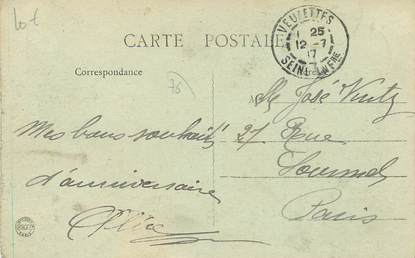 Lot
CARTE POSTALE
Correspondance
76
VEULETTES
25
12-7
17
SEINE INFRE
Mes bons souhaits
d'anniversaire
Alice
José
27 Rue
Lourmel
Paris